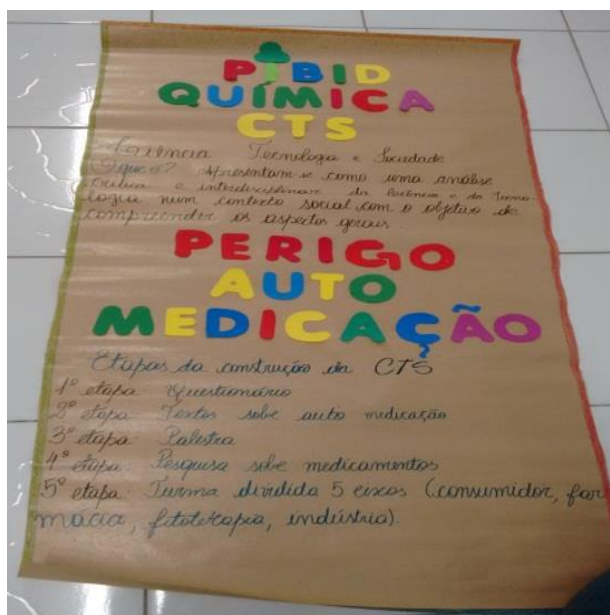 PIBID
QUÍMICA
CTS
Ciência Tecnologia e Sociedade
O que é? Apresentam-se como uma análise
crítica e interdisciplinar da Ciência e da Tecno-
logia num contexto social com o objetivo de
compreender os aspectos gerais.
PERIGO
AUTO
MEDICAÇÃO
Etapas da construção da CTS
1º etapa: Questionário
2º etapa: Textos sobe auto medicação
3º etapa: Palestra
4º etapa: Pesquisa sobe medicamentos
5º etapa: Turma dividida 5 eixos (consumidor, far
mácia, fitoterapia, indústria).